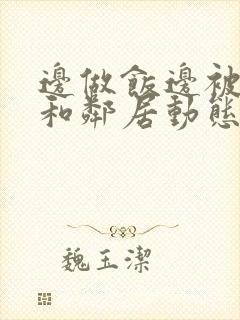 邊做飯邊被
和鄰居動態
魏玉潔